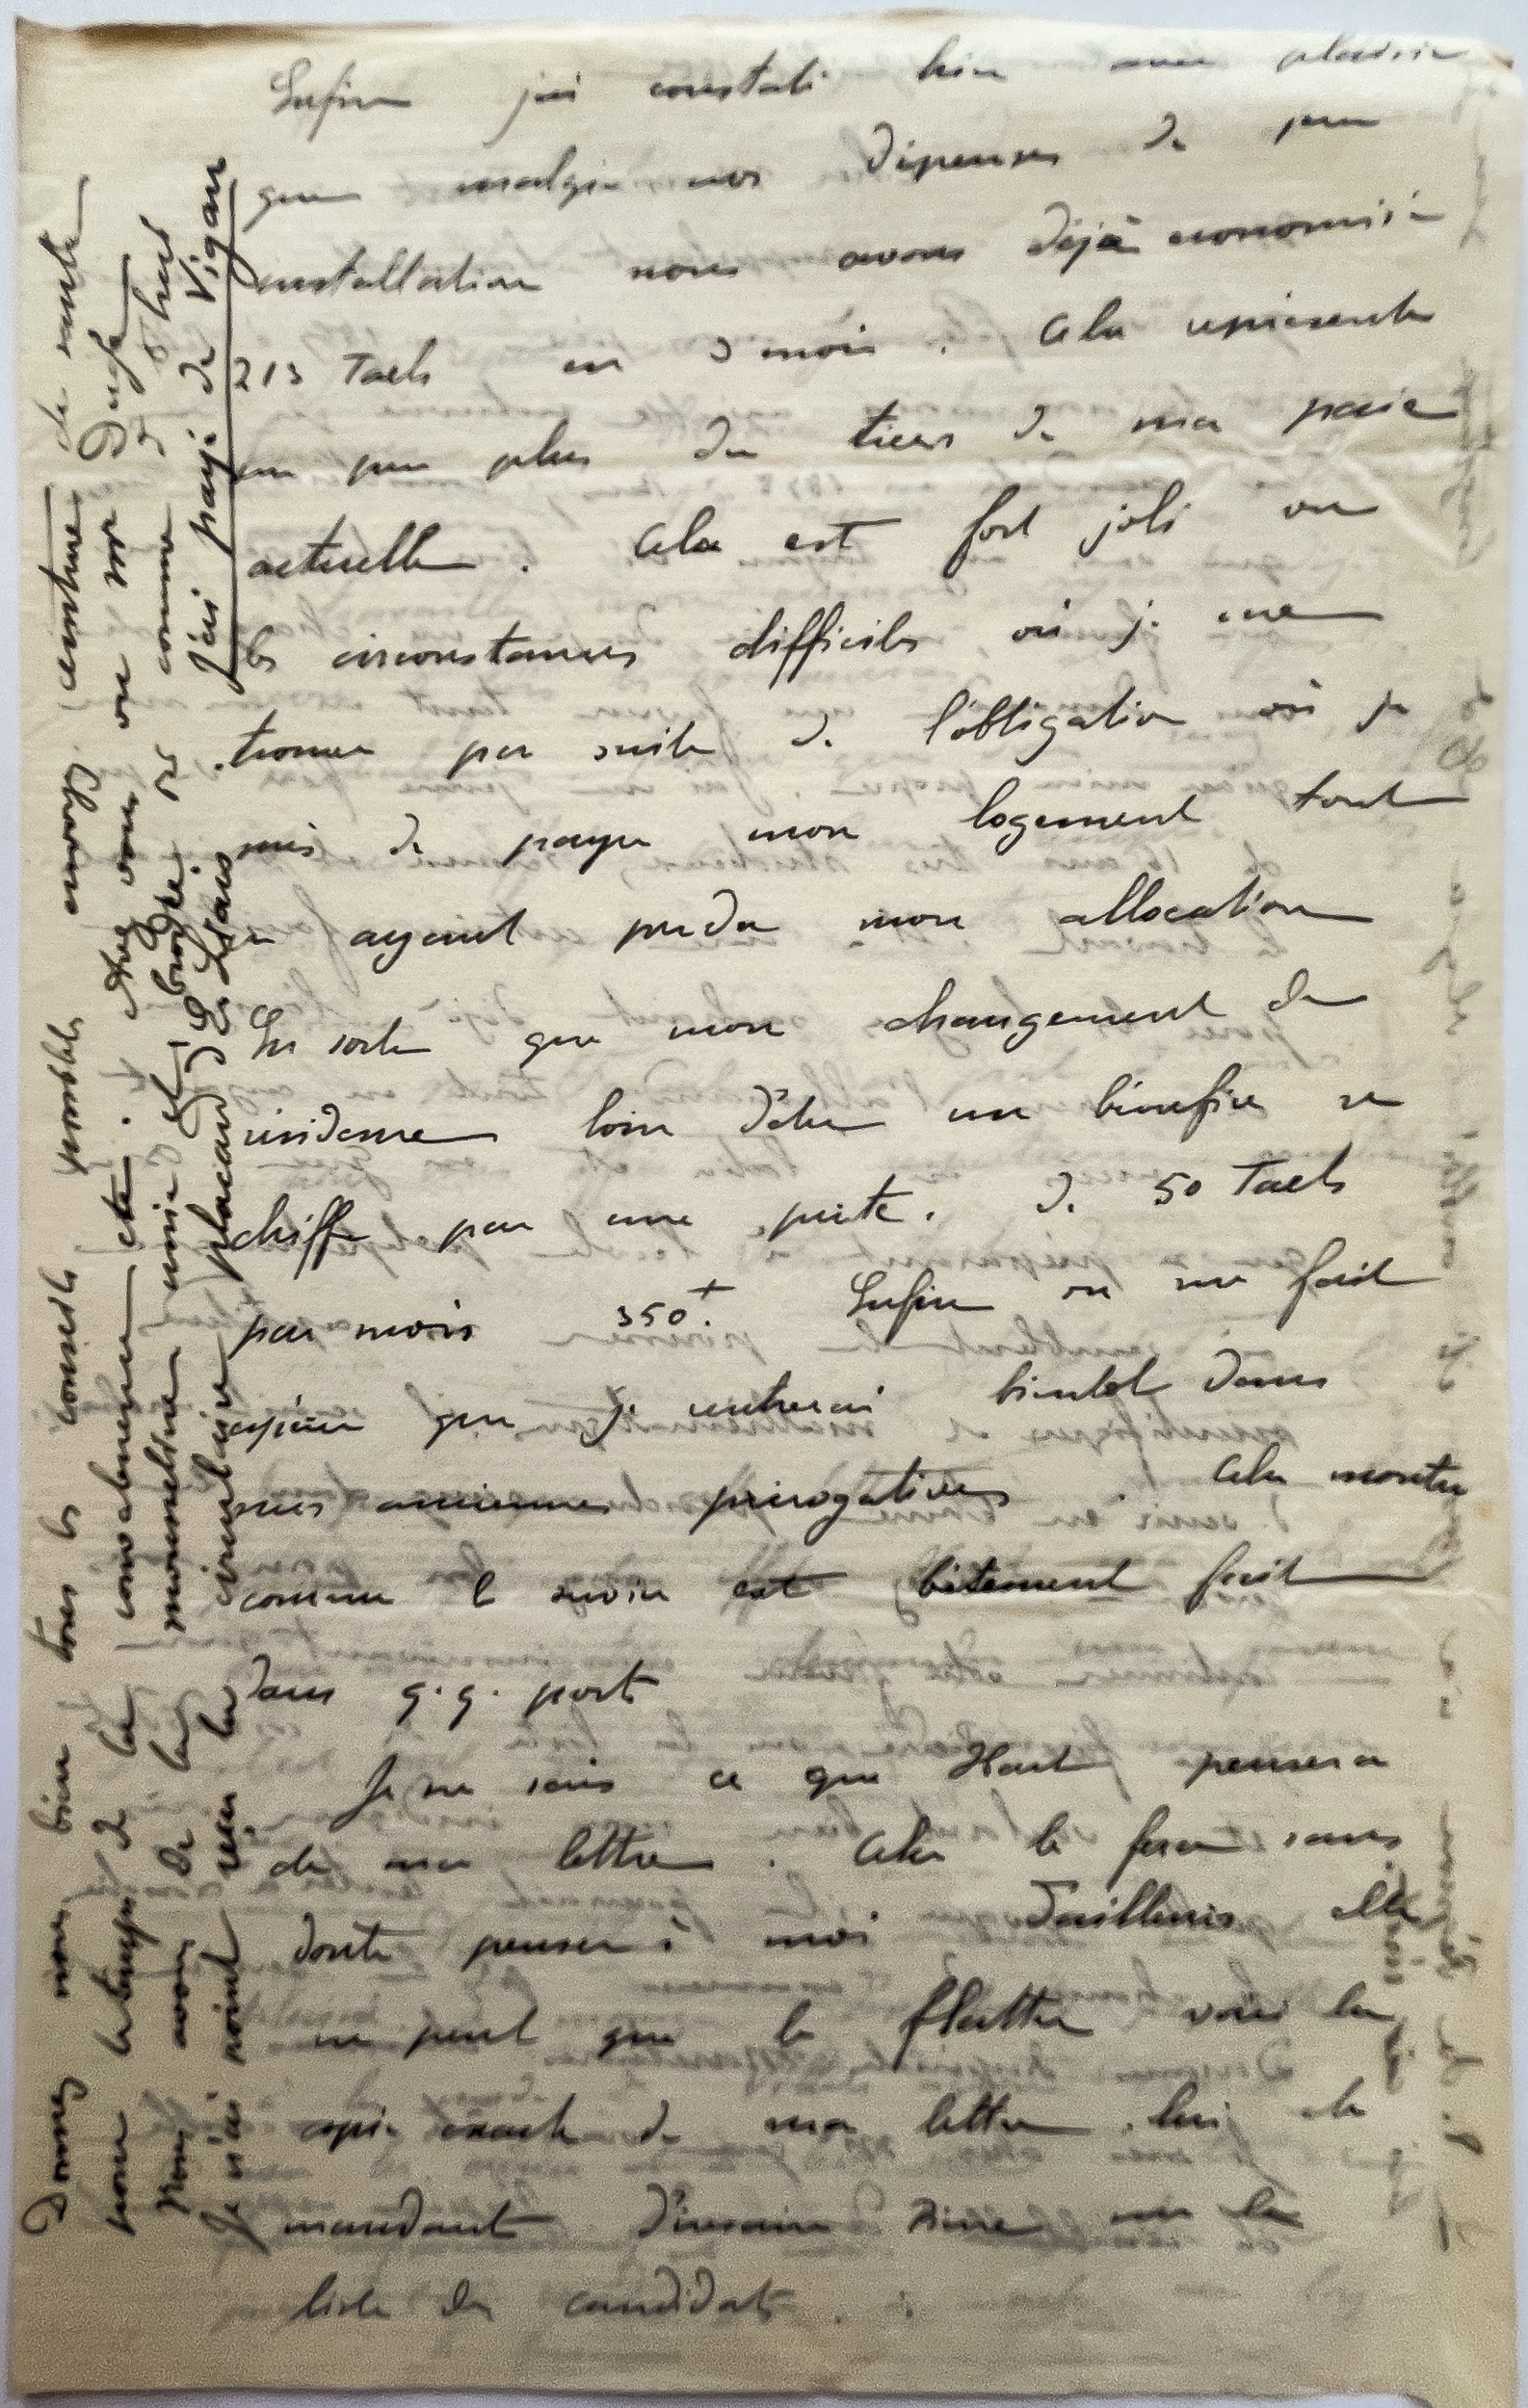 Enfin j'ai constaté hier avec plaisir
que malgré nos dépenses de peu
installation nous avons déjà économisé
213 Taels en 2 mois. Cela représente
un peu plus du tiers de ma paie
actuelle. Cela est fort joli vu
les circonstances difficiles où je me
trouve par suite de l'obligation où je
suis de payer mon logement tout
en ayant perdu mon allocation
En sorte que mon changement de
résidence loin d'être un bénéfice se
chiffre par une perte. de 50 Taels
par mois 350+. Enfin on me fait
espérer que je rentrerai bientôt dans
mes anciennes prérogatives. Cela montre
comme le service est bêtement fait
dans q.q. ports
Je ne sais ce que Hart pensera
de ma lettre. Cela le fera sans
doute penser à moi D'ailleurs elle
ne peut que le flatter voici la
copie exacte de ma lettre lui
demandant d'inscrire Pierre sur la
liste des candidats.
Donnez nous bien tous les conseils possibles envoyez ceinture de
pour le temps de la convalescence etc. chez vous on me
Nous avons de la mousseline unie et brodée comme
Je n'ai point reçu la circulaire placard d'Es
J'ai payé de Vigan